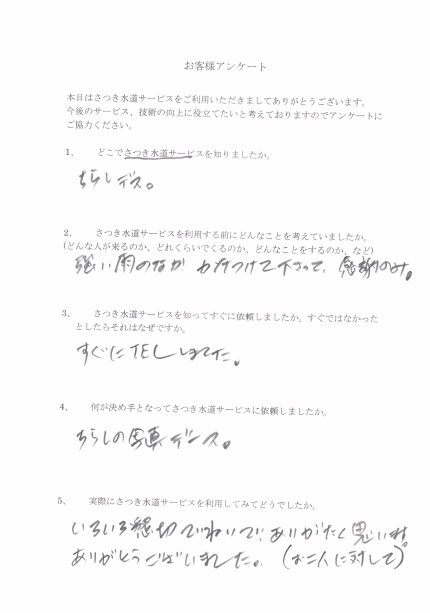 お客様アンケート
本日はさつき水道サービスをご利用いただきましてありがとうございます。
今後のサービス、技術の向上に役立てたいと考えておりますのでアンケートに
ご協力ください。
1、 どこでさつき水道サービスを知りましたか。
ちらしデス。
2、 さつき水道サービスを利用する前にどんなことを考えていましたか。
(どんな人が来るのか、どれくらいでくるのか、どんなことをするのか、など)
強い雨のなか かけつけて下さって、感謝のみ。
3、 さつき水道サービスを知ってすぐに依頼しましたか。すぐではなかった
としたらそれはなぜですか。
すぐにTELしました。
4、 何が決め手となってさつき水道サービスに依頼しましたか。
ちらしの写真デース。
5、 実際にさつき水道サービスを利用してみてどうでしたか。
いろいろ懇切 ありがたく思います。
ありがとうございました。(お二人に対して)